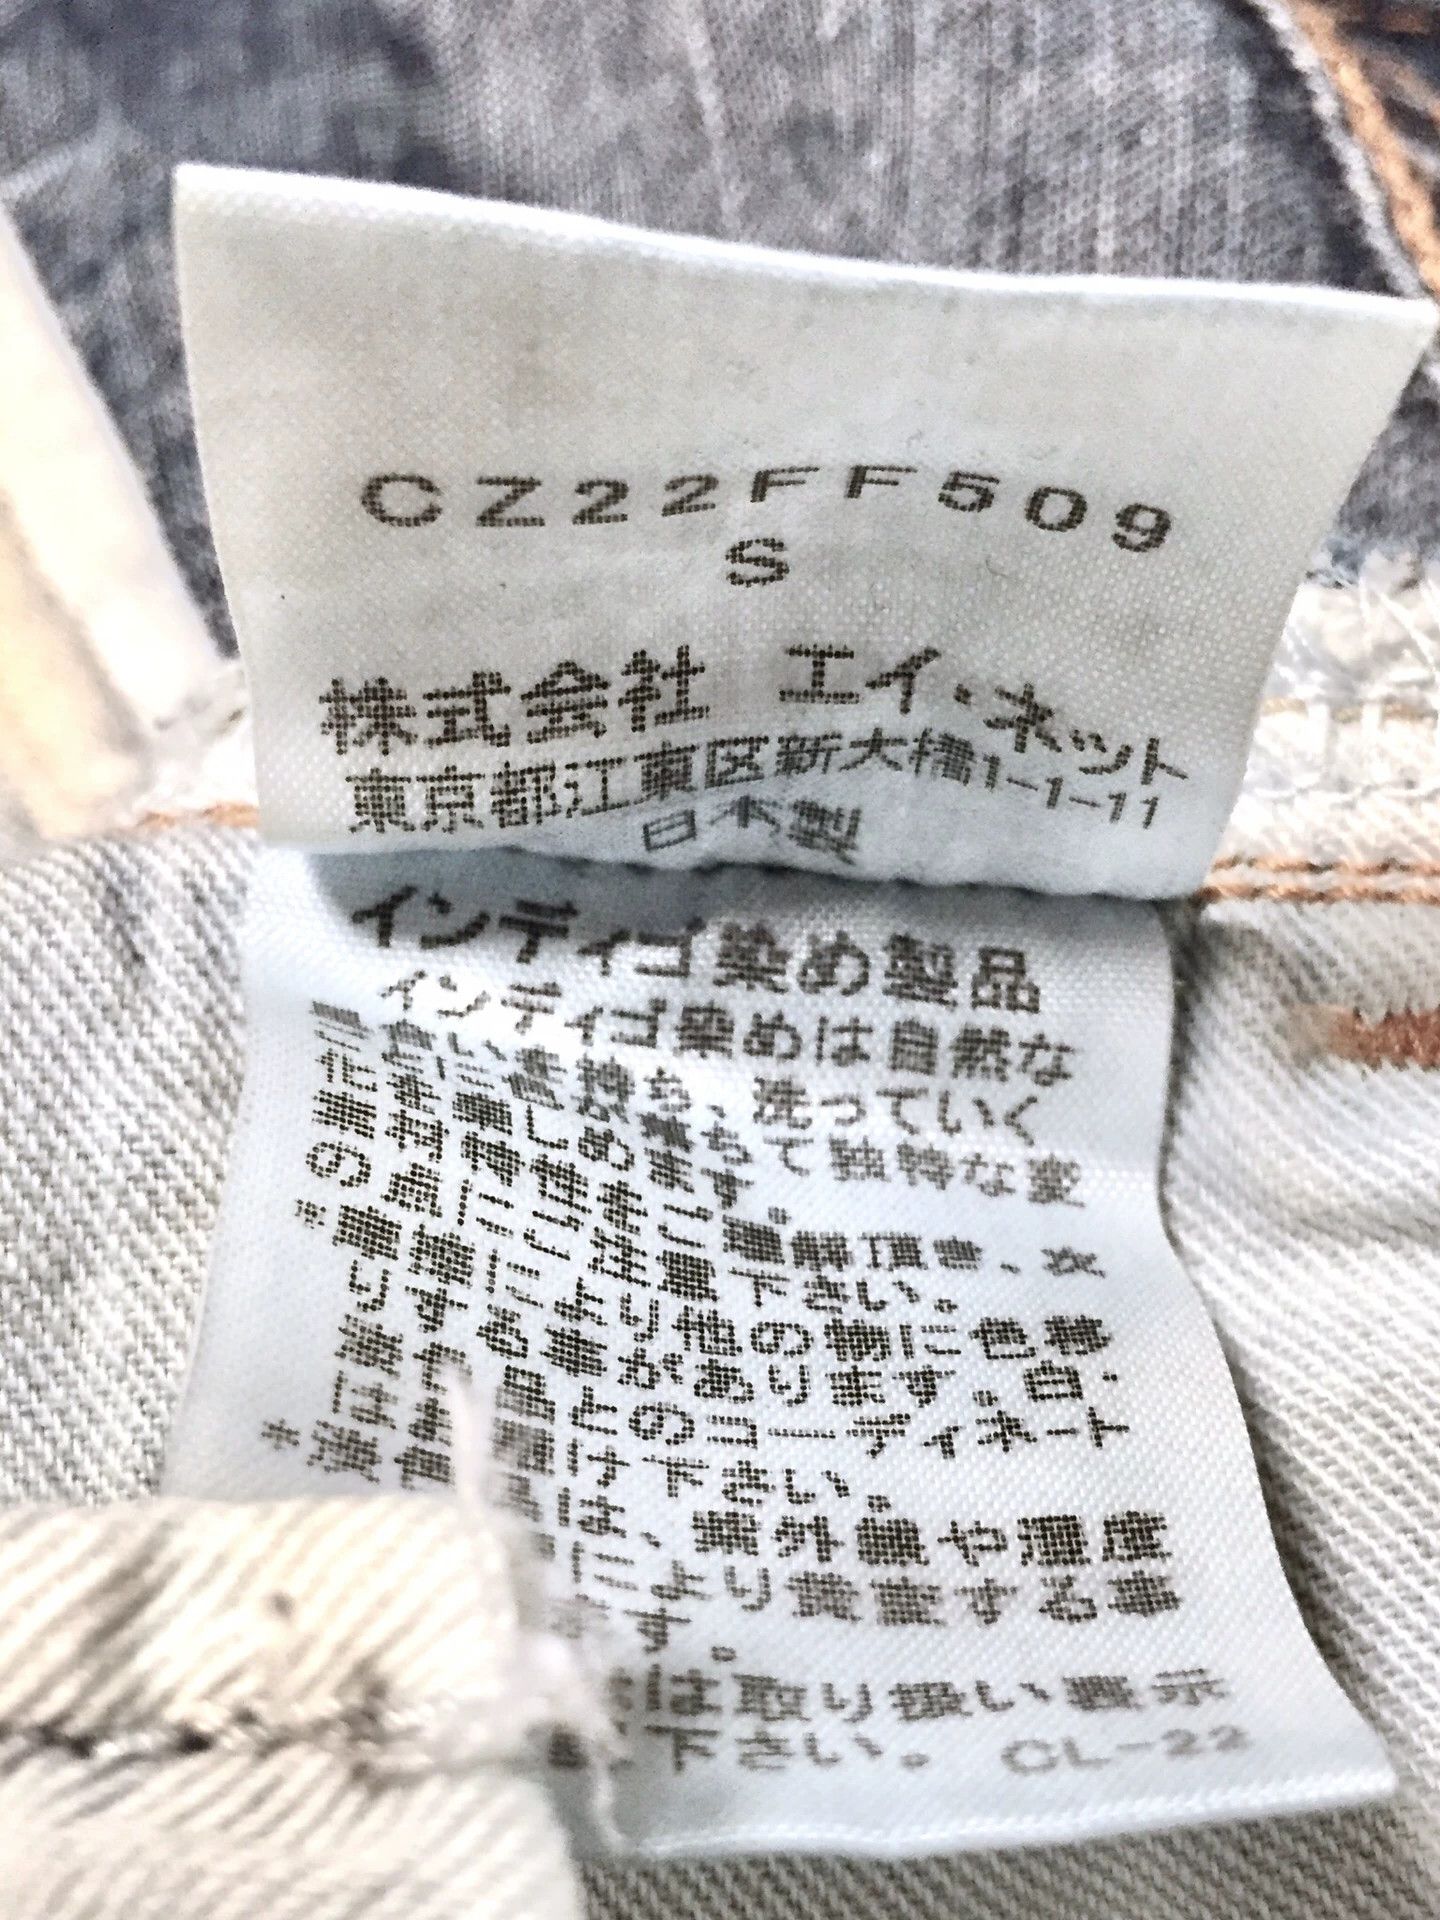 CZ22FF509
S
株式会社 エイ・ネット
東京都江東区新大橋1-1-11
日本製
インディゴ染め製品
インディゴ染めは自然な
色落ち、洗っていく
に楽しめます。て独特な変
化を
素材特性をご理解頂き、次
の点にご注意下さい。
※摩擦により他の物に色移
りする事があります。白・
とのコーディネート
は 下さい。
※ には、紫外線や湿度
により黄変する事
す。
は取り扱い表示
下さい。 CL-22